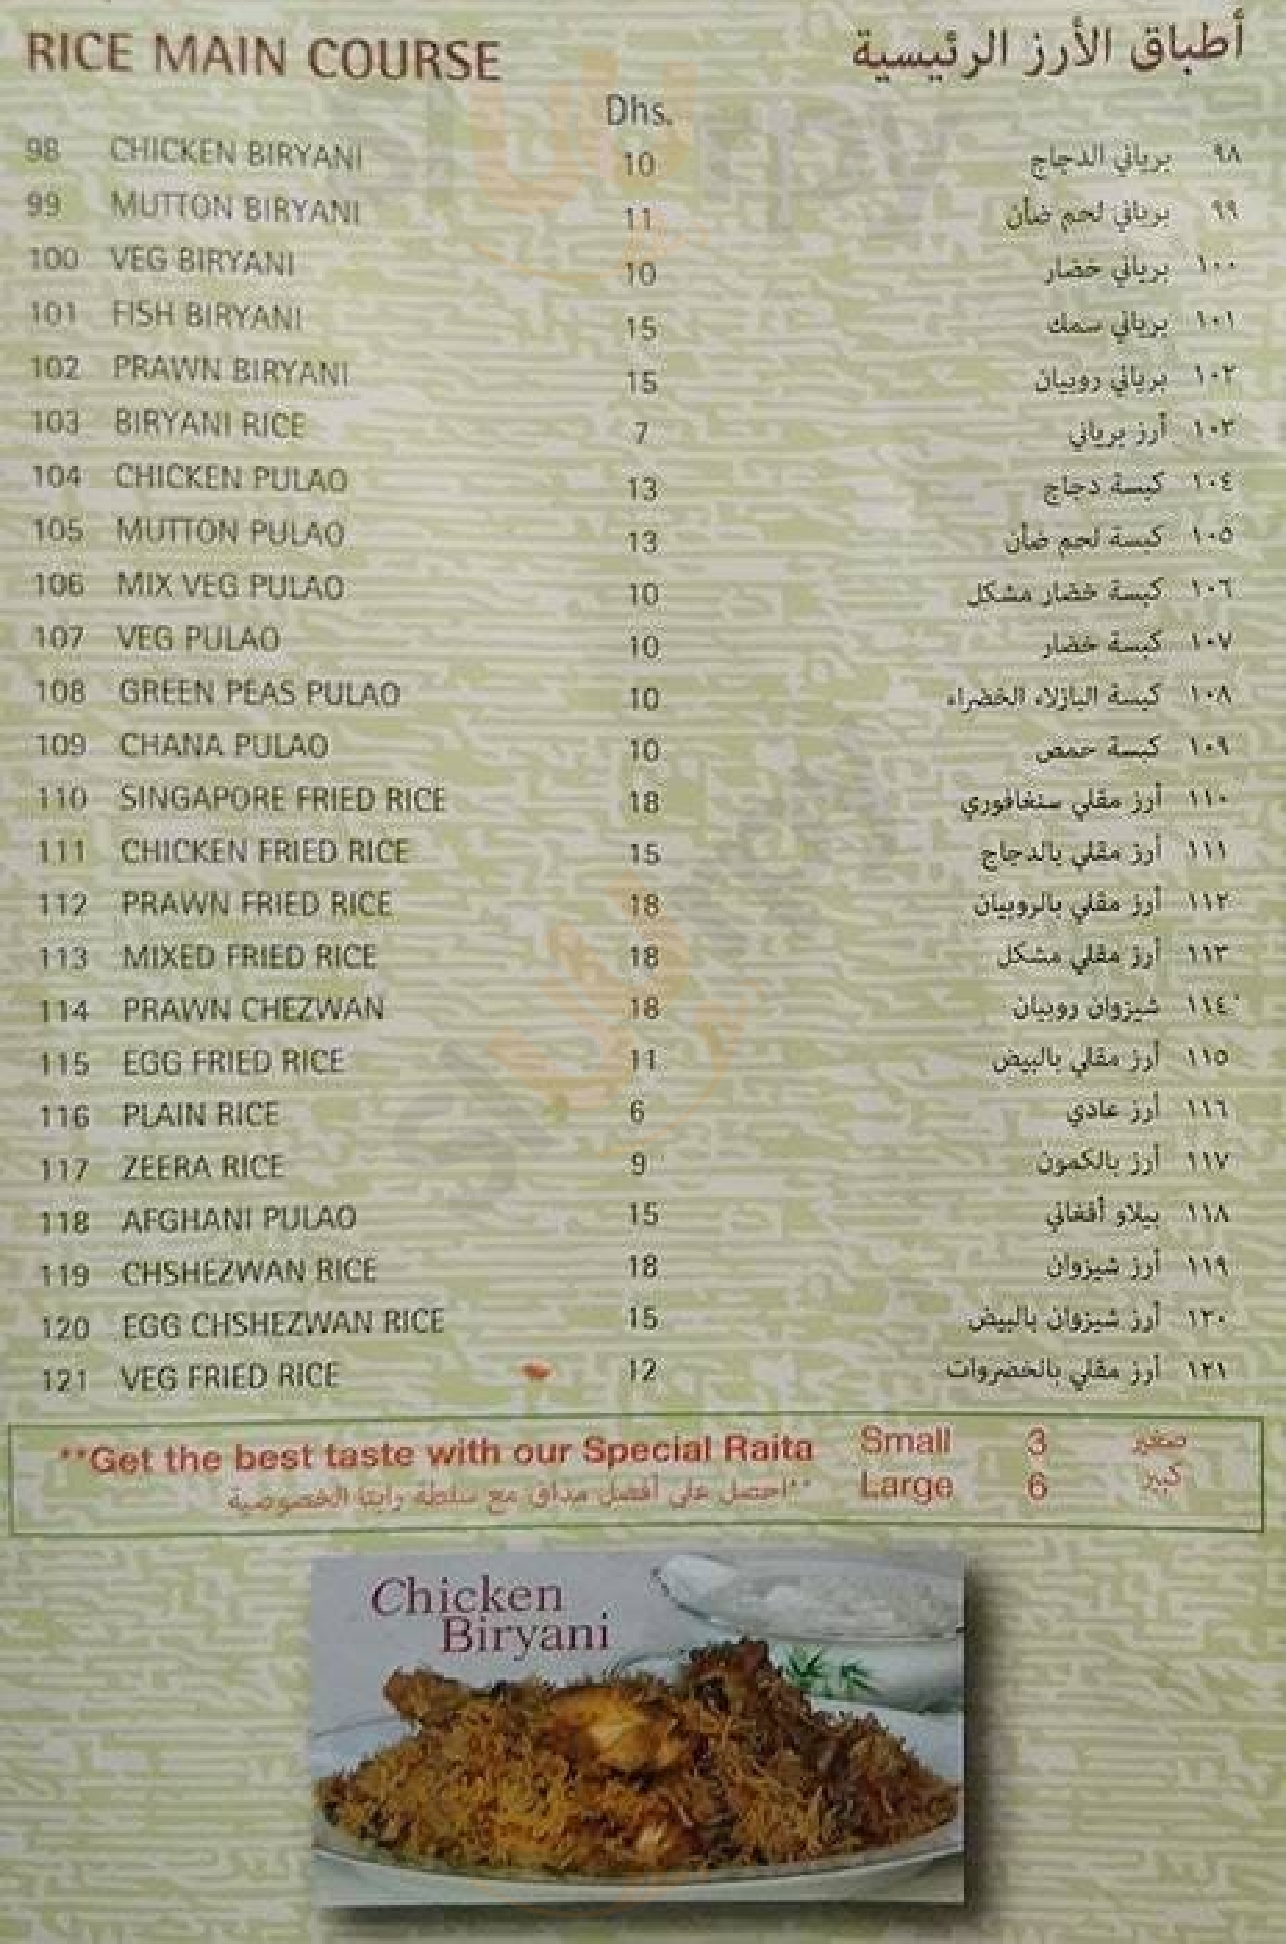 RICE MAIN COURSE أطباق الأرز الرئيسية
Dhs.
98 CHICKEN BIRYANI 10 برياني الدجاج ٩٨
99 MUTTON BIRYANI 11 برياني لحم ضأن ٩٩
100 VEG BIRYANI 10 برياني خضار ١٠٠
101 FISH BIRYANI 15 برياني سمك ١٠١
102 PRAWN BIRYANI 15 برياني روبيان ١٠٢
103 BIRYANI RICE 7 أرز برياني ١٠٣
104 CHICKEN PULAO 13 كبسة دجاج ١٠٤
105 MUTTON PULAO 13 كبسة لحم ضأن ١٠٥
106 MIX VEG PULAO 10 كبسة خضار مشكل ١٠٦
107 VEG PULAO 10 كبسة خضار ١٠٧
108 GREEN PEAS PULAO 10 كبسة البازلاء الخضراء ١٠٨
109 CHANA PULAO 10 كبسة حمص ١٠٩
110 SINGAPORE FRIED RICE 18 أرز مقلي سنغافوري ١١٠
111 CHICKEN FRIED RICE 15 أرز مقلي بالدجاج ١١١
112 PRAWN FRIED RICE 18 أرز مقلي بالروبيان ١١٢
113 MIXED FRIED RICE 18 أرز مقلي مشكل ١١٣
114 PRAWN CHEZWAN 18 شيزوان روبيان ١١٤
115 EGG FRIED RICE 11 أرز مقلي بالبيض ١١٥
116 PLAIN RICE 6 أرز عادي ١١٦
117 ZEERA RICE 9 أرز بالكمون ١١٧
118 AFGHANI PULAO 15 بيلاو أفغاني ١١٨
119 CHSHEZWAN RICE 18 أرز شيزوان ١١٩
120 EGG CHSHEZWAN RICE 15 أرز شيزوان بالبيض ١٢٠
121 VEG FRIED RICE 12 أرز مقلي بالخضروات ١٢١
**Get the best taste with our Special Raita Small 3 صغير
**احصل على أفضل مذاق مع سلطة رايتا الخصوصية Large 6 كبير
Chicken
Biryani